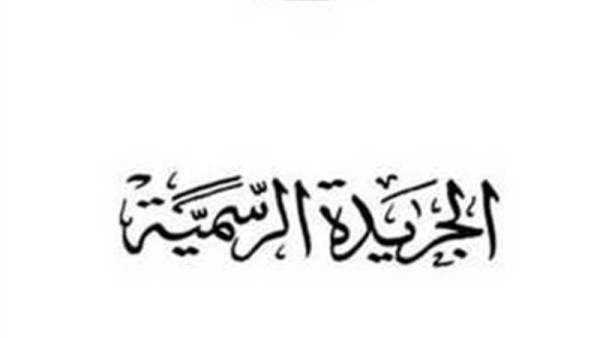 الجريدة الرسمية